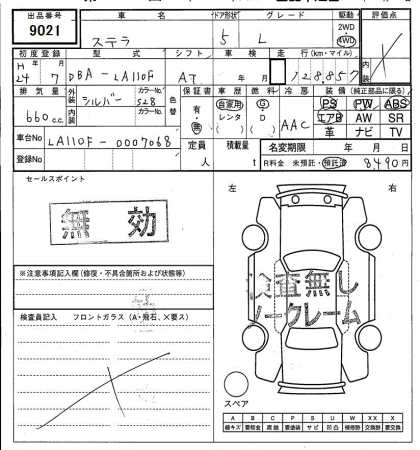 出品番号 車名 ドア形状 グレード 駆動 評価点
9021 ステラ 5 L 2WD 4WD
初度登録 型式 シフト 車検 走行(km・マイル) 内装
H 24 7 DBA-LA110F AT 年 月 128,857
排気量 外装 カラーNo. 色替 保証書 車歴 燃料 冷房 装備(純正部品に限る)
660cc シルバー S28 有・無 自家用 レンタ G D AAC PS PW ABS
内装 カラーNo. エアB AW SR
革 ナビ TV
車台No LA110F-0007068 定員 人 積載量 t 名変期限 年 月 日
登録No R料金 未預託・預託済 8,490円
セールスポイント
無効
左 右
※注意事項記入欄(修復・不具合箇所および状態等)
検査無し
ノークレーム
検査員記入 フロントガラス(A・飛石、X要ス)
スペア
A B C P S U W X XX
線キズ 要板金 腐蝕 要塗装 サビ 凹凸 補修跡 要交換